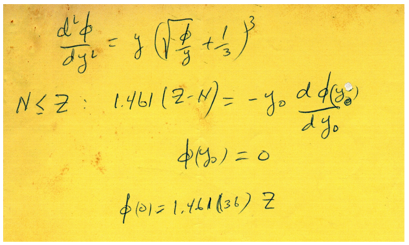 d²φ/dy² = y (√(φ/y) + 1/3)³
N ≤ Z : 1.461 (Z-N) = -y₀ dφ(y₀)/dy₀
φ(y₀) = 0
φ(0) = 1.461(36) Z